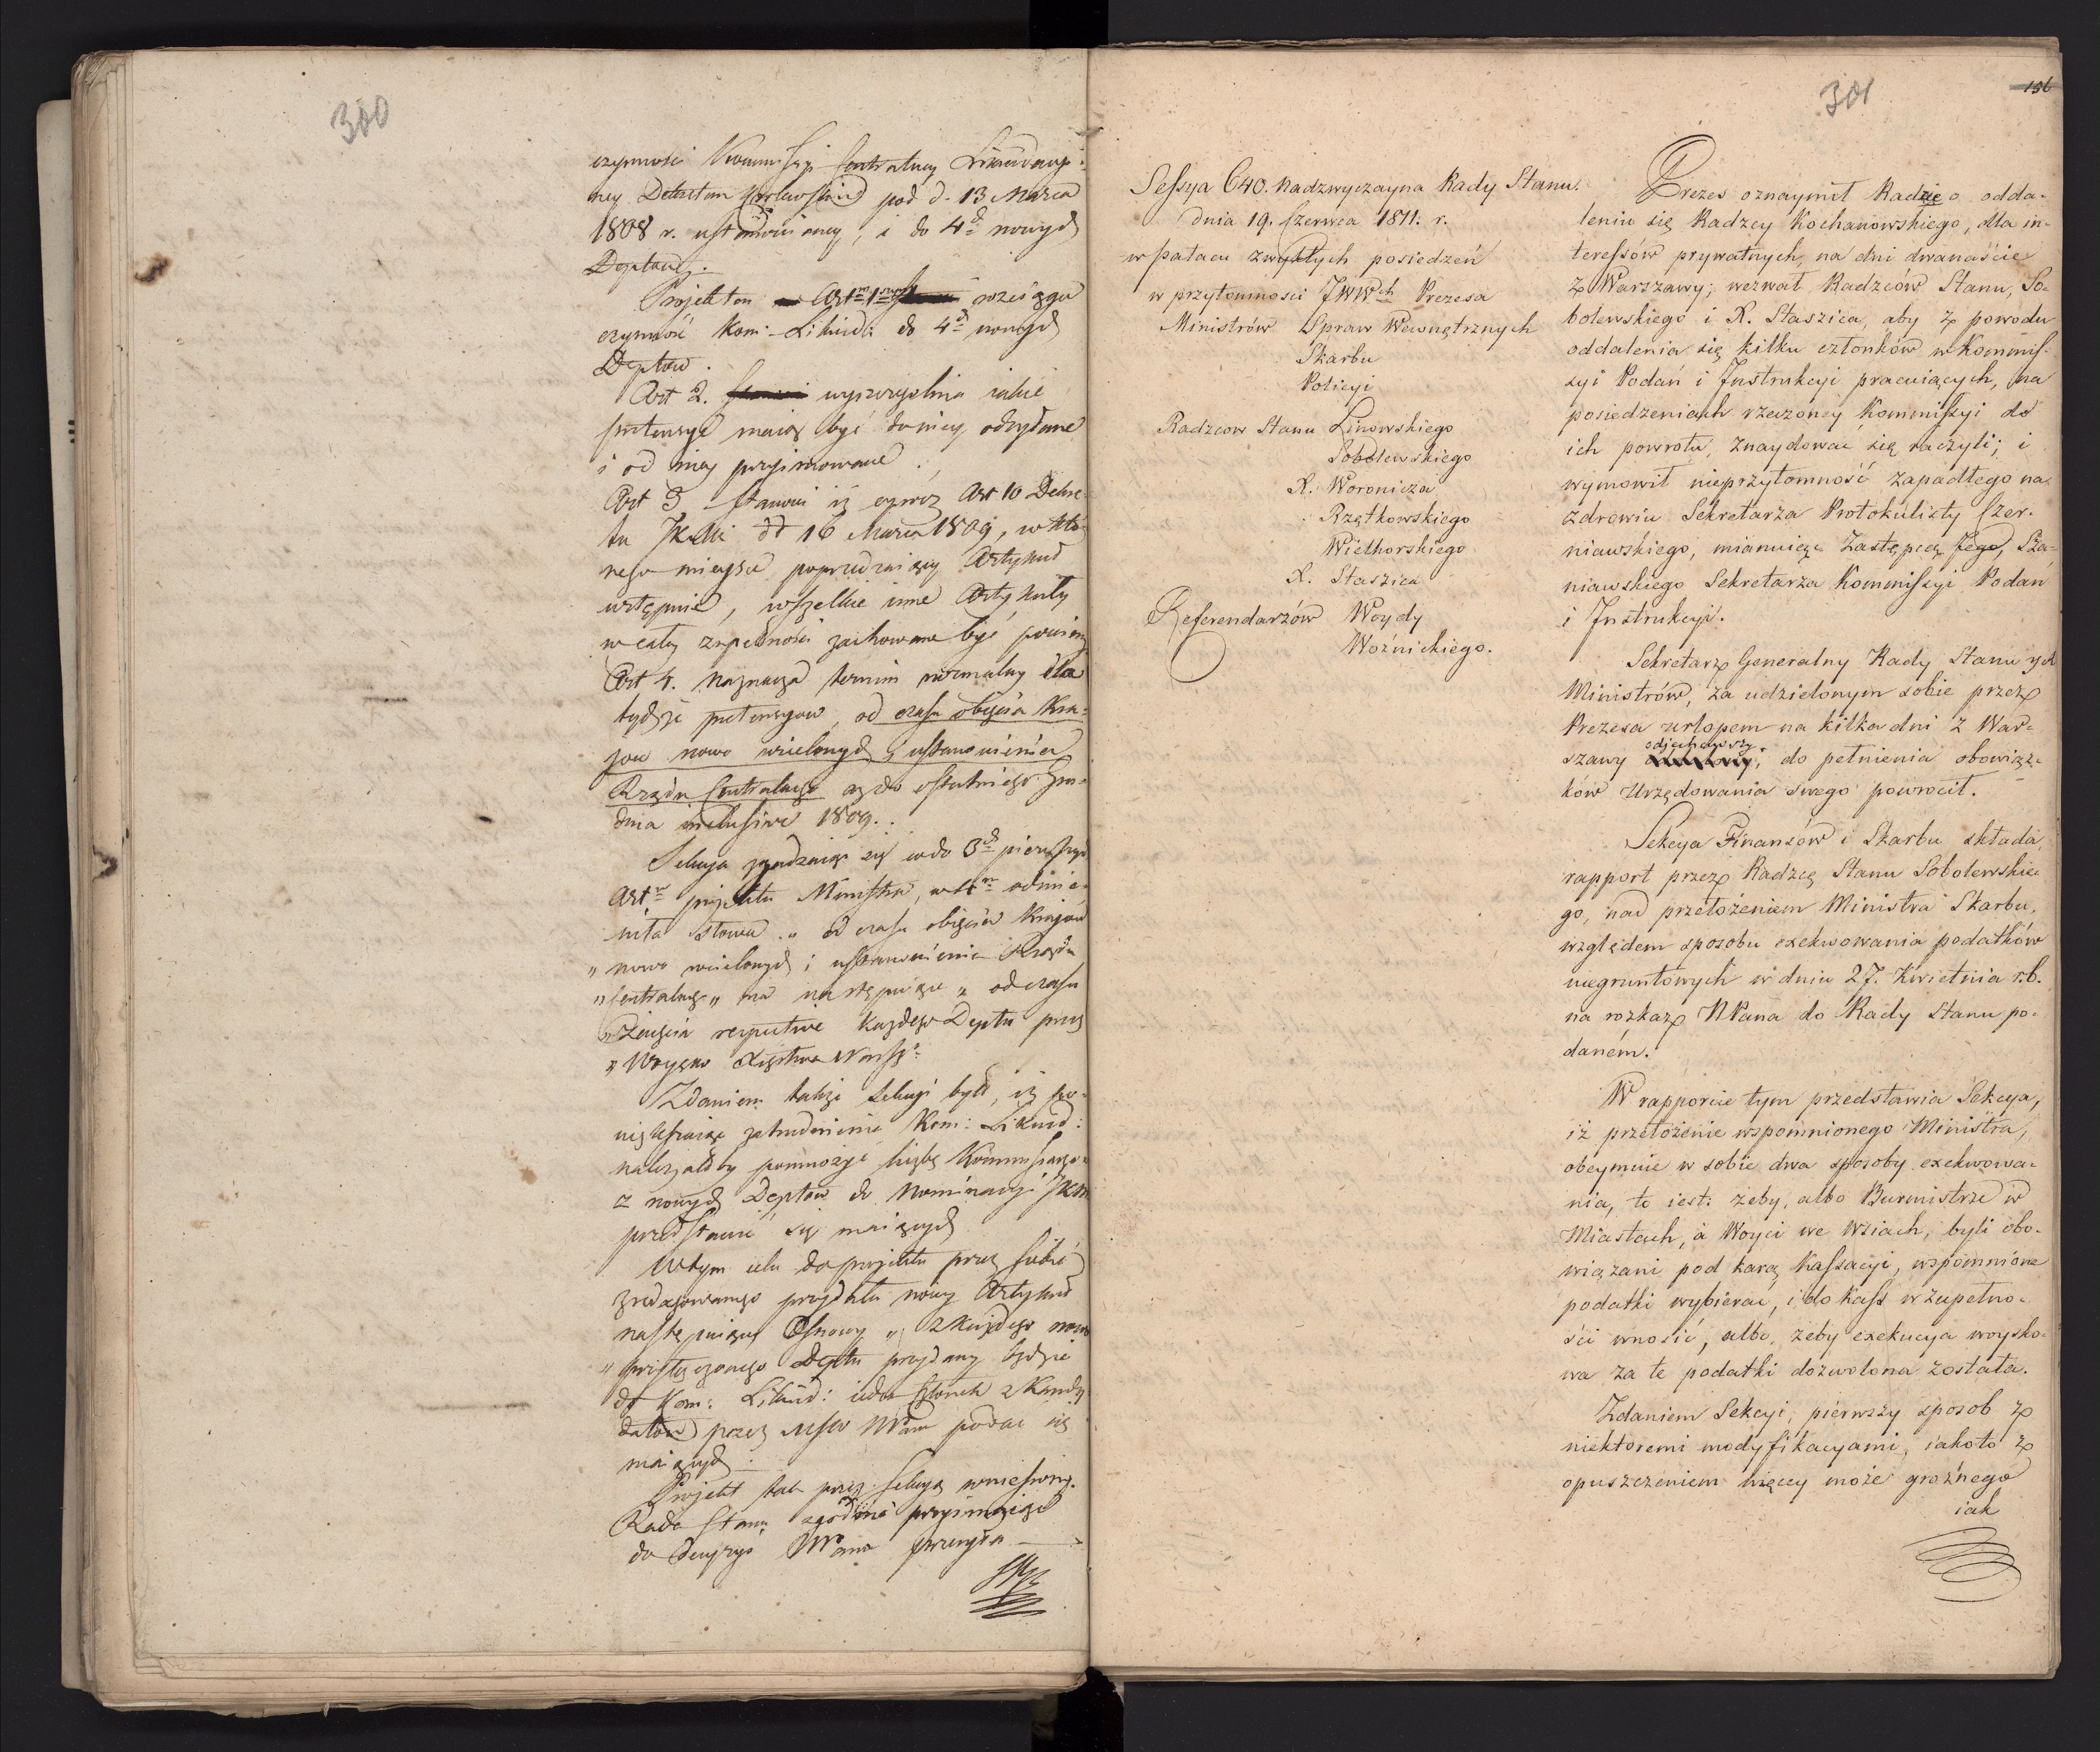 300
czynności Kommissyi Centralney Likwidacyi-
ney Dekretem Królewskim pod d. 13 Marca
1808 r. ustanowioney, i do 4ch nowych
Deptow.
Projektu Artm 1wszy rozciąga
czynność Kom: Likwid: do 4ch nowych
Deptow.
Art 2. wyszczegolnia iakie
pretensye maią być do niey odsyłane
i od niey przyimowane.
Art 3. stanowi iż oprócz Art 10 Dekre-
tu JKMci dd 16 Marca 1809, w któ-
rego mieysce poprzedzaiący Artykuł
wstępuie, wszelkie inne Artykuły
w całey zupełności zachowane być powinny
Art 4. Naznacza termin normalny dla
tychże pretensyow, od czasu obięcia Kra-
jow nowo wcielonych i ustanowienia
Rządu Centralnego aż do ostatniego Gru-
dnia inclusive 1809.
Sekcya zgadzaiąc się co do 3ch pierwszych
Artw projektu Ministra, w 4m odmie-
niła słowa „ od czasu obięcia Kraiów
„ nowo wcielonych i ustanowienia Rządu
„ Centralnego „ na następuiące „ od czasu
„ Zaięcia respective każdego Deptu przez
„ Woysko Xięstwa Warszo.
Zdaniem także Sekcyi było, iż po-
większaiąc zatrudnienie Kom: Likwid:
należałoby pomnożyć liczbę Kommissarzow
z nowych Deptow do Nominacyi JKM
przedstawić się maiących
W tym celu do projektu przez siebie
zredagowanego przydała nowy Artykuł
następuiącey Osnowy „ z każdego nowo
„ przyłączonego Deptu przydany będzie
do Kom: Likwid: ieden Członek z Kandy-
datow przez MSW NPanu podać się
maiących.
Projekt tak przez Sekcyą wniesiony.
Rada Stanu zgodnie przyimuiąc
do Decyzyi NPana przesyła
301
196
Sessya 640. Nadzwyczayna Rady Stanu.
dnia 19. Czerwca 1811. r.
w pałacu zwykłych posiedzeń
w przytomności JWWch Prezesa
Ministrów Spraw Wewnętrznych
Skarbu
Policyi
Radzcow Stanu Linowskiego
Sobolewskiego
X. Woronicza
Rzętkowskiego
Wielhorskiego
X. Staszica
Referendarzów Woydy
Woźnickiego.
Prezes oznaymił Radzie o odda-
leniu się Radzcy Kochanowskiego, dla in-
teressów prywatnych, na dni dwanaście
z Warszawy; wezwał Radzców Stanu, So-
bolewskiego i X. Staszica, aby z powodu
oddalenia się kilku członków w Kommis-
syi Podań i Instrukcyi pracuiących, na
posiedzeniach rzeczoney Kommissyi do
ich powrotu, znaydować się raczyli; i
wymowił nieprzytomność zapadłego na
zdrowiu Sekretarza Protokulisty Czer-
niawskiego, mianuiąc Zastępcą Jego, Sza-
niawskiego Sekretarza Kommissyi Podań
i Instrukcyi.
Sekretarz Generalny Rady Stanu y
Ministrów, za udzielonym sobie przez
Prezesa urlopem na kilka dni z War-
szawy odjechawszy, do pełnienia obowiąz-
ków Urzędowania swego powrocił.
Sekcya Finansów i Skarbu składa
rapport przez Radzcę Stanu Sobolewskie-
go, nad przełożeniem Ministra Skarbu,
względem sposobu exekwowania podatków
niegruntowych w dniu 27. Kwietnia r.b.
na rozkaz NPana do Rady Stanu po-
daném.
W rapporcie tym przedstawia Sekcya,
iż przełożenie wspomnionego Ministra,
obeymuie w sobie dwa sposoby exekwowa-
nia, to iest: żeby, albo Burmistrze w
Miastach, a Woyci we Wsiach, byli obo-
wiązani pod karą Kassacyi, wspomnione
podatki wybierać, i do Kass w zupełno-
ści wnosić, albo, żeby exekucya woysko-
wa za te podatki dozwolona została.
Zdaniem Sekcyi, pierwszy sposob z
niektoremi modyfikacyami, iakoto z
opuszczeniem więcey może groźnego
iak